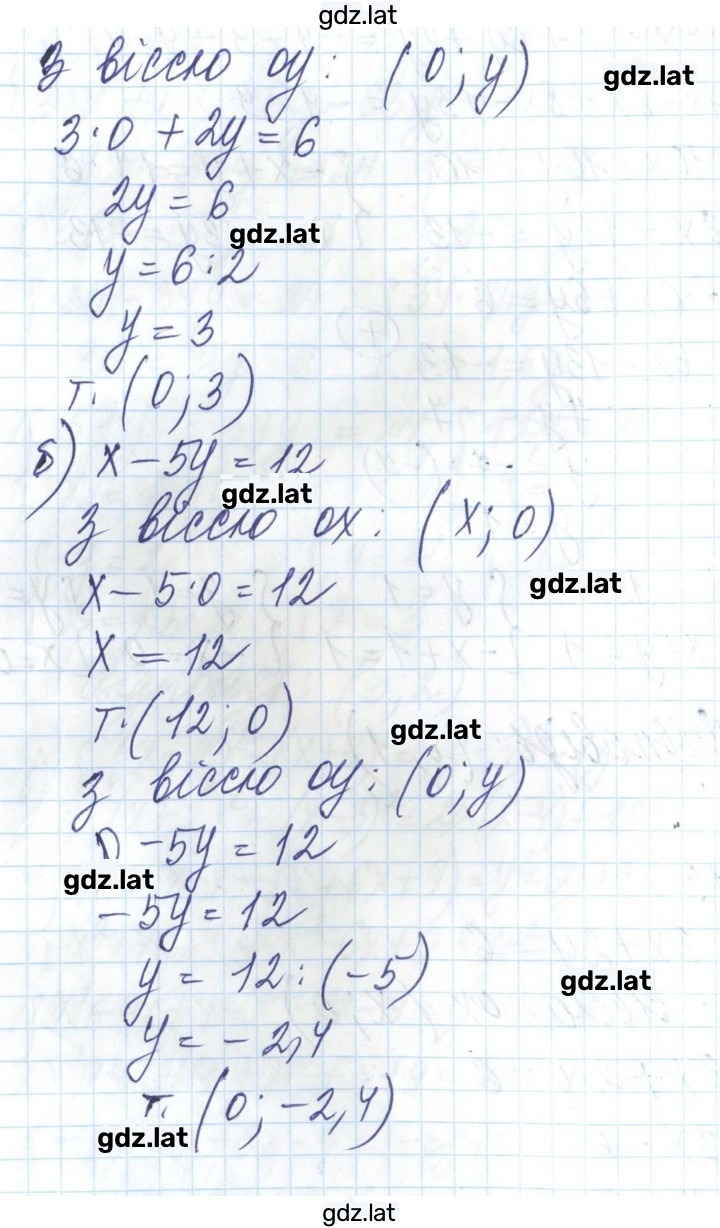 gdz.lat
З віссю oy: (0; y)
gdz.lat
3·0 + 2y = 6
2y = 6
gdz.lat
y = 6:2
y = 3
т. (0; 3)
б) x – 5y = 12
gdz.lat
З віссю ox: (x; 0)
gdz.lat
x – 5·0 = 12
x = 12
т. (12; 0)
gdz.lat
з віссю oy: (0; y)
0 – 5y = 12
gdz.lat
–5y = 12
y = 12:(–5)
gdz.lat
y = –2,4
т. (0; –2,4)
gdz.lat
gdz.lat